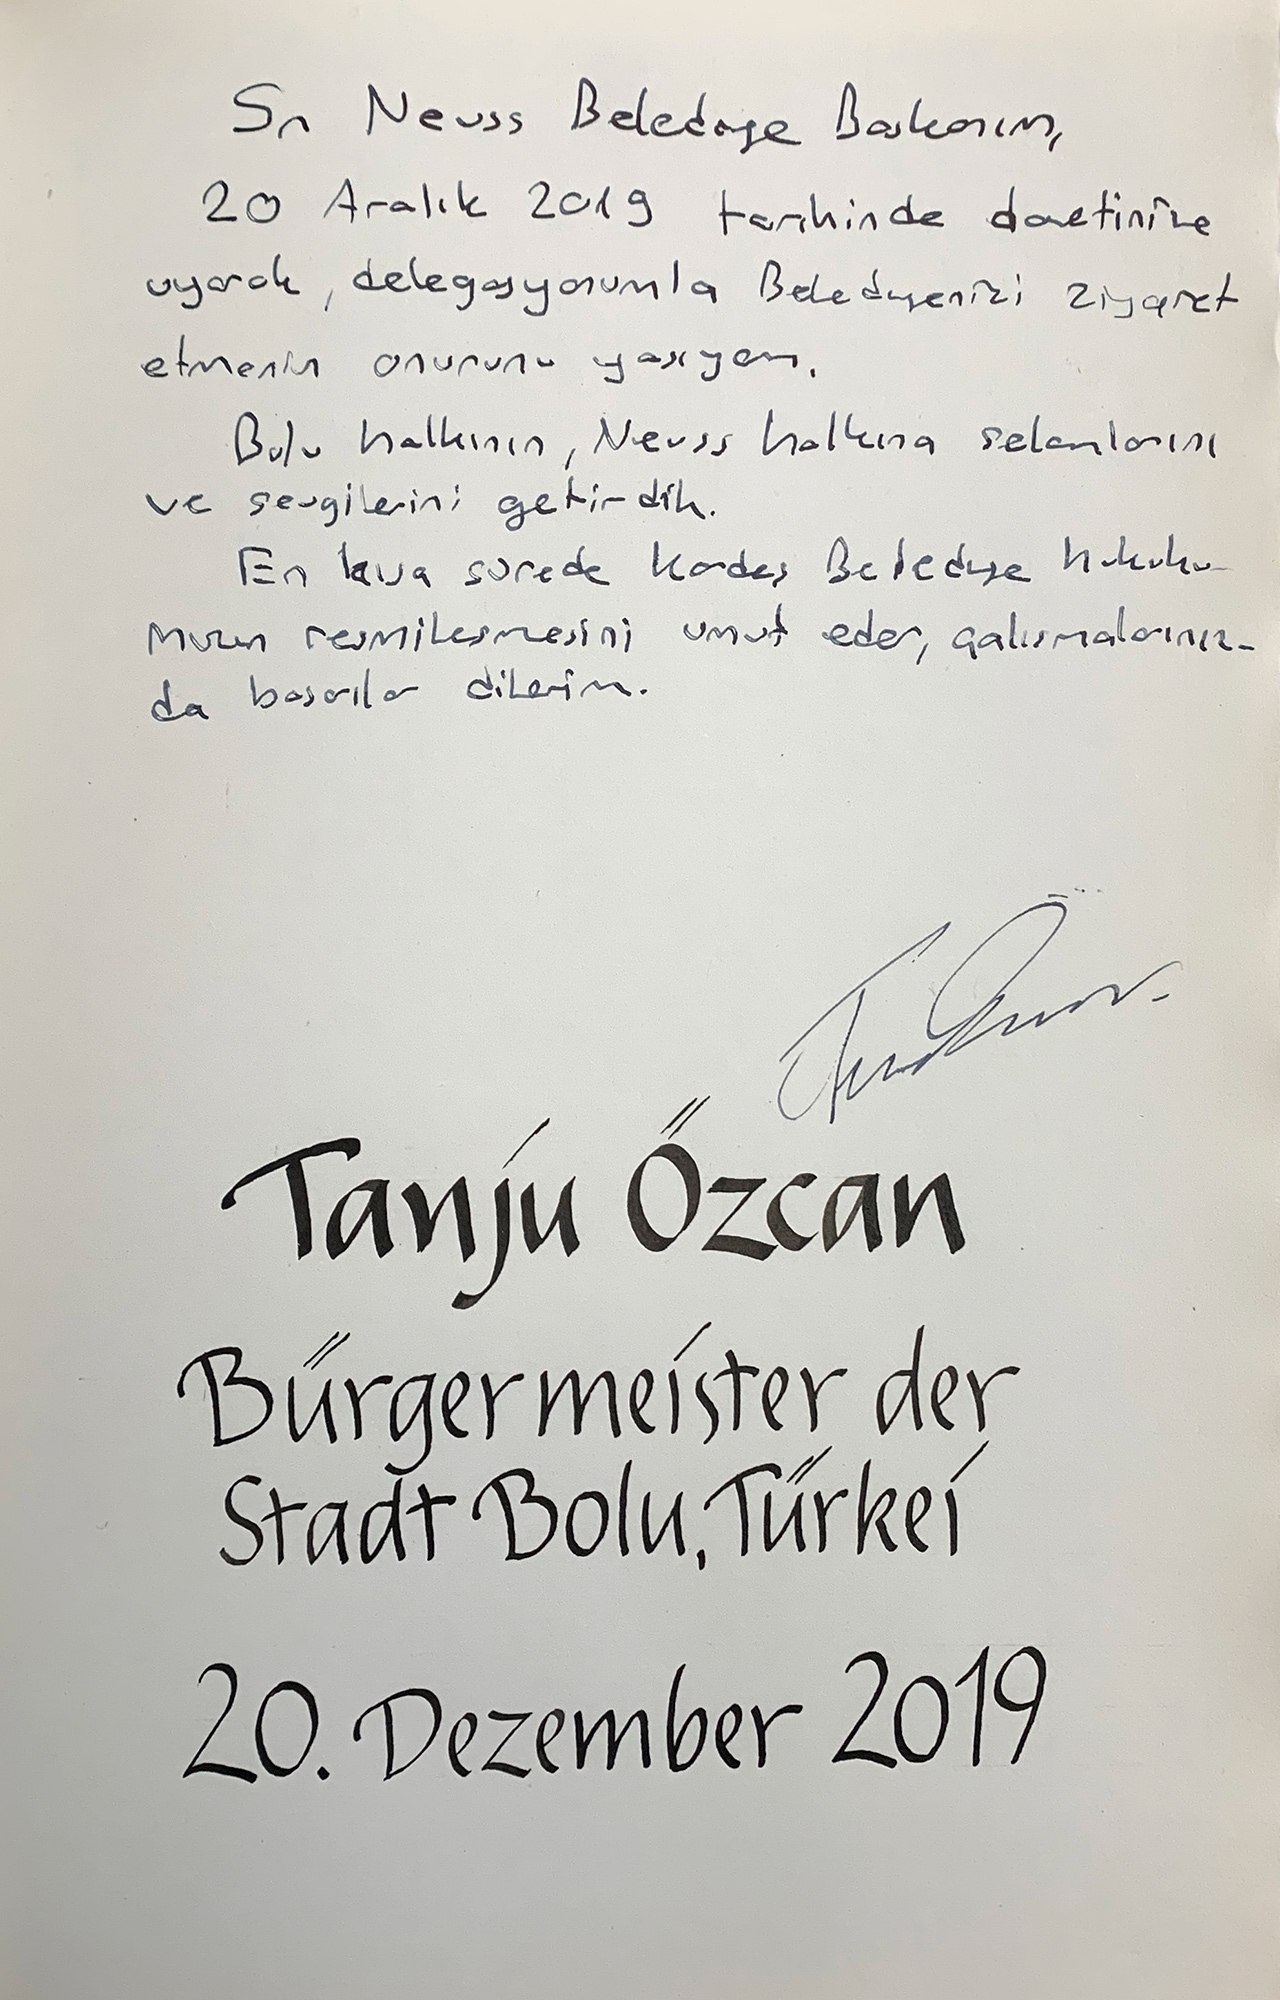 Sn Neuss Belediye Başkanım,
20 Aralık 2019 tarihinde davetinize
uyarak, delegasyonumla Belediyenizi ziyaret
etmenin onurunu yaşıyom.
Bolu halkının, Neuss halkına selamlarını
ve sevgilerini getirdik.
En kısa sürede kardeş Belediye hukuku-
muzun resmileşmesini umut eder, çalışmalarınız-
da başarılar dilerim.
Tanju Özcan
Bürgermeister der
Stadt Bolu, Türkei
20. Dezember 2019